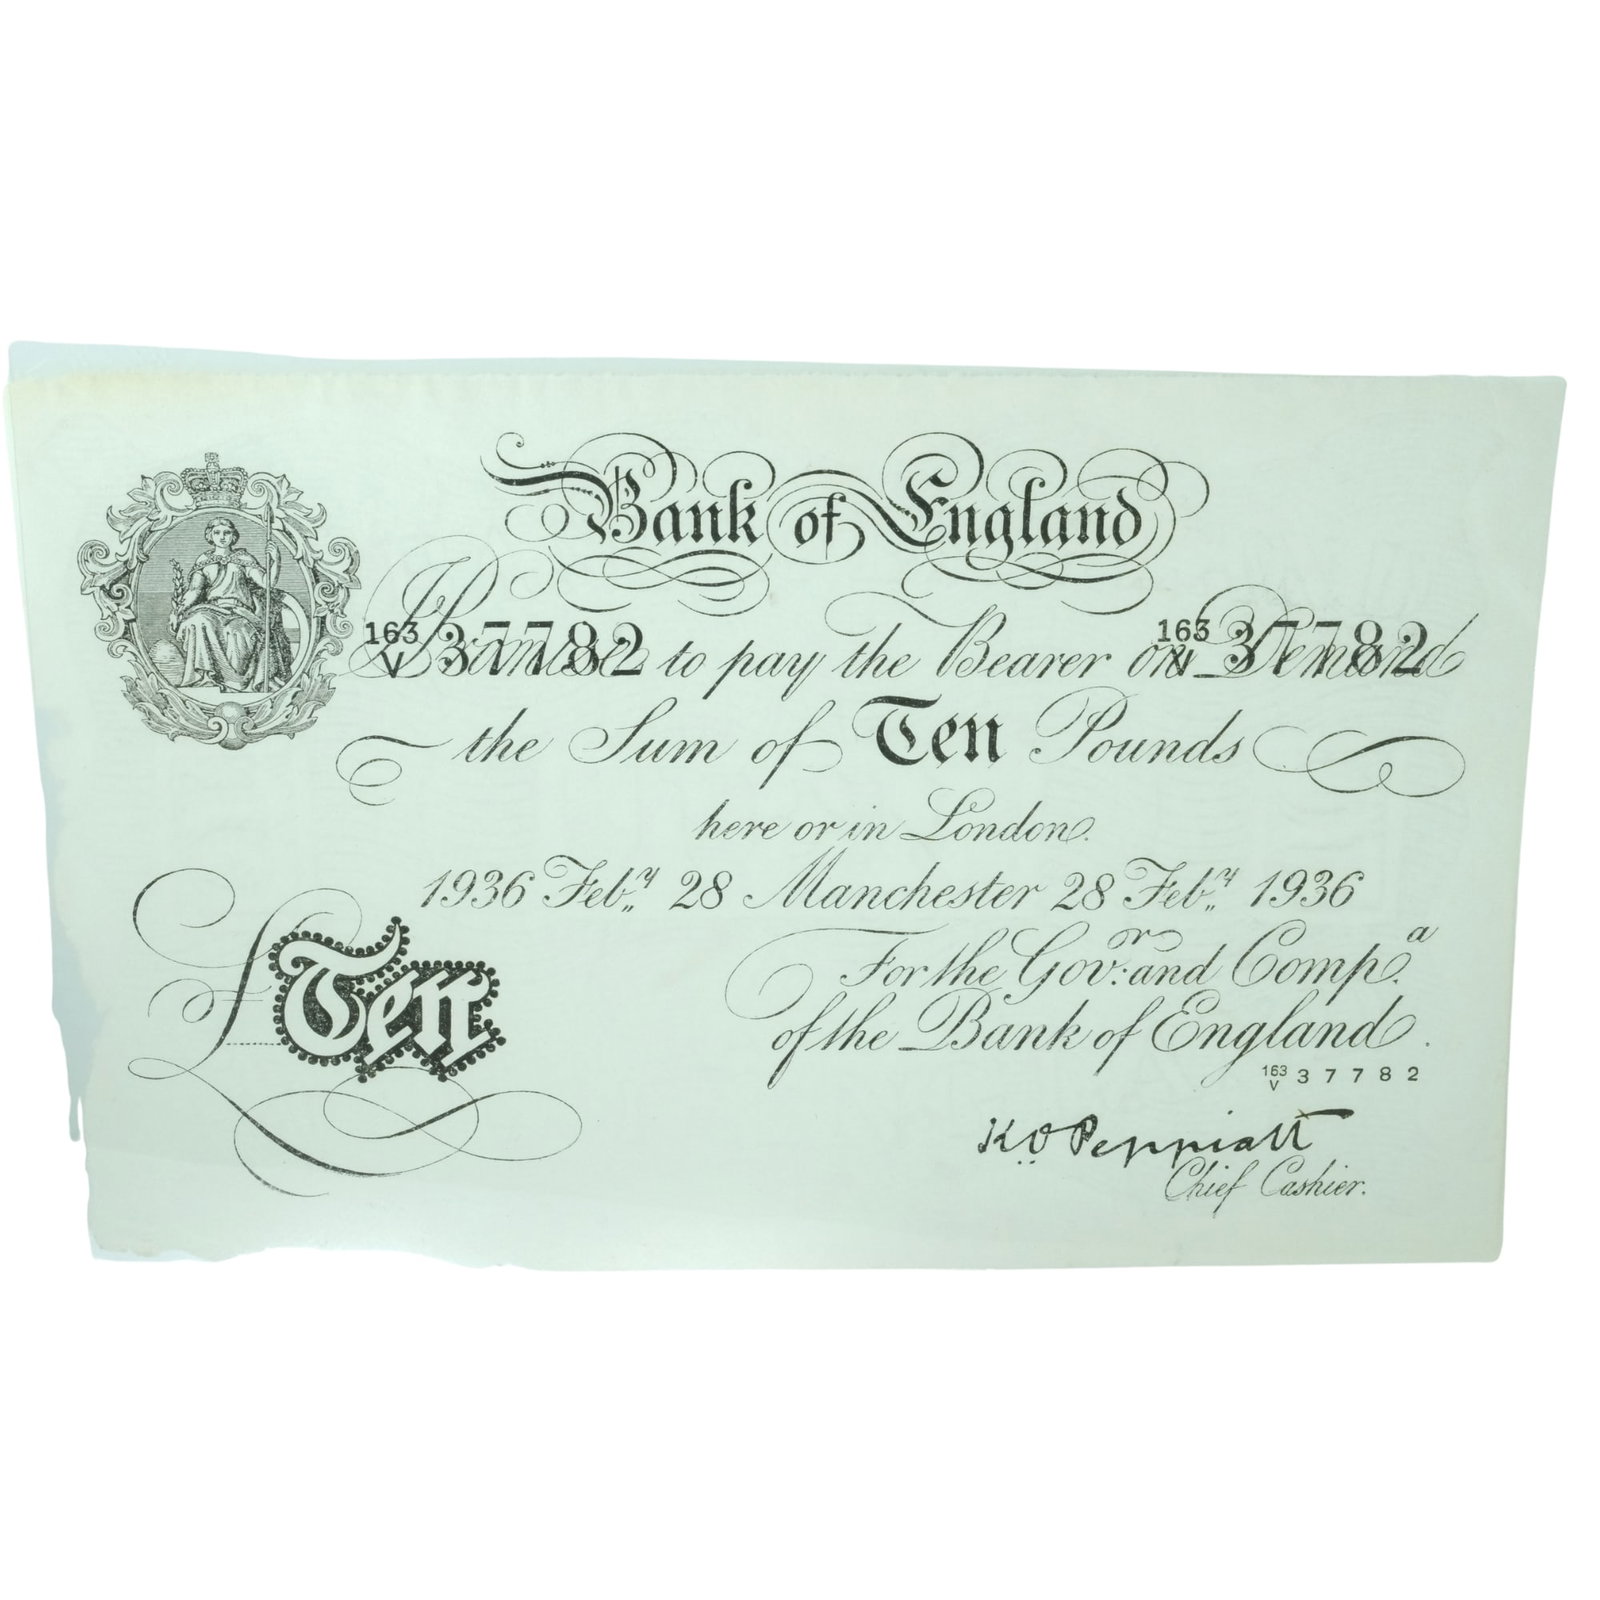 Bank of England
163 V 37782 163 V 37782
Promise to pay the Bearer on Demand
the Sum of Ten Pounds
here or in London.
1936 Feb.y 28 Manchester 28 Feb.y 1936
For the Gov:r and Comp.a
of the Bank of England.
£Ten
163 V 37782
K.O. Peppiatt
Chief Cashier.